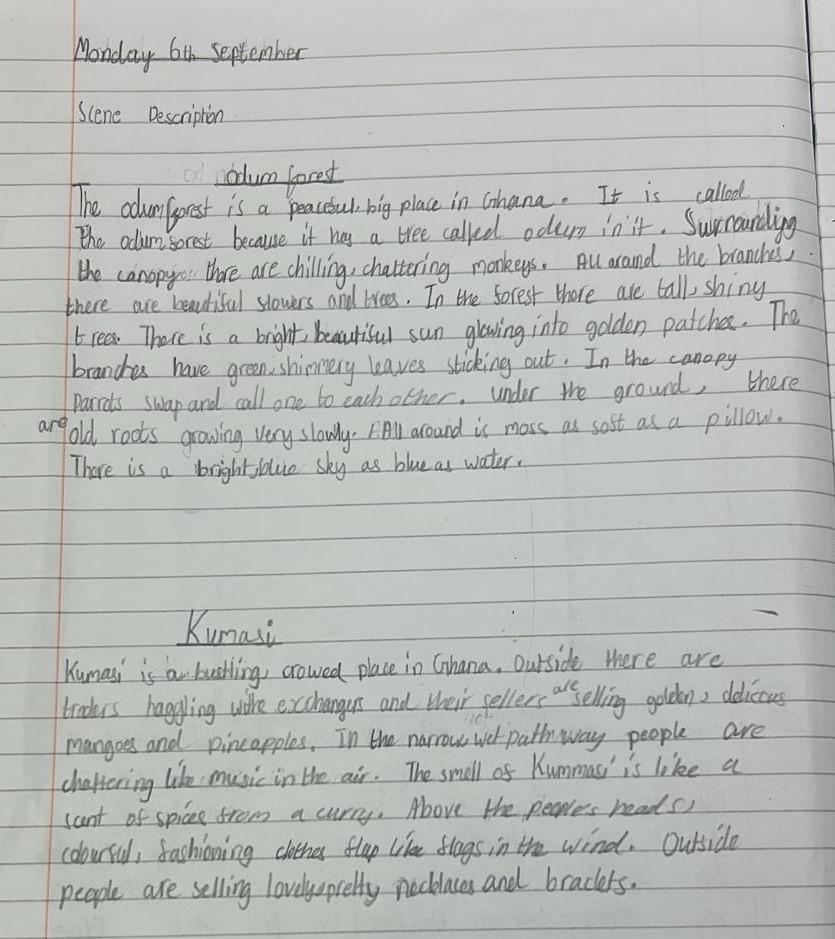 Monday 6th september
Scene Description
odum forest
The odum forest is a peaceful, big place in Ghana. It is called
the odum forest because it has a tree called odum in it. Surrounding
the canopy there are chilling, chattering monkeys. All around the branches,
there are beautiful flowers and trees. In the forest there are tall, shiny
trees. There is a bright, beautiful sun glowing into golden patches. The
branches have green, shimmery leaves sticking out. In the canopy
parrots swap and call one to each other. under the ground, there
are old roots growing very slowly. All around is moss as soft as a pillow.
There is a bright, blue sky as blue as water.
Kumasi
Kumasi is a bustling, crowed place in Ghana. Outside there are
traders haggling with exchangers and their sellers are selling golden, delicous
mangoes and pineapples. In the narrow, wet pathway people are
chattering like music in the air. The smell of Kummasi is like a
scant of spices from a curry. Above the peoples heads,
colourful, fashioning clothes flap like flags in the wind. Outside
people are selling lovely, pretty necklaces and braclets.